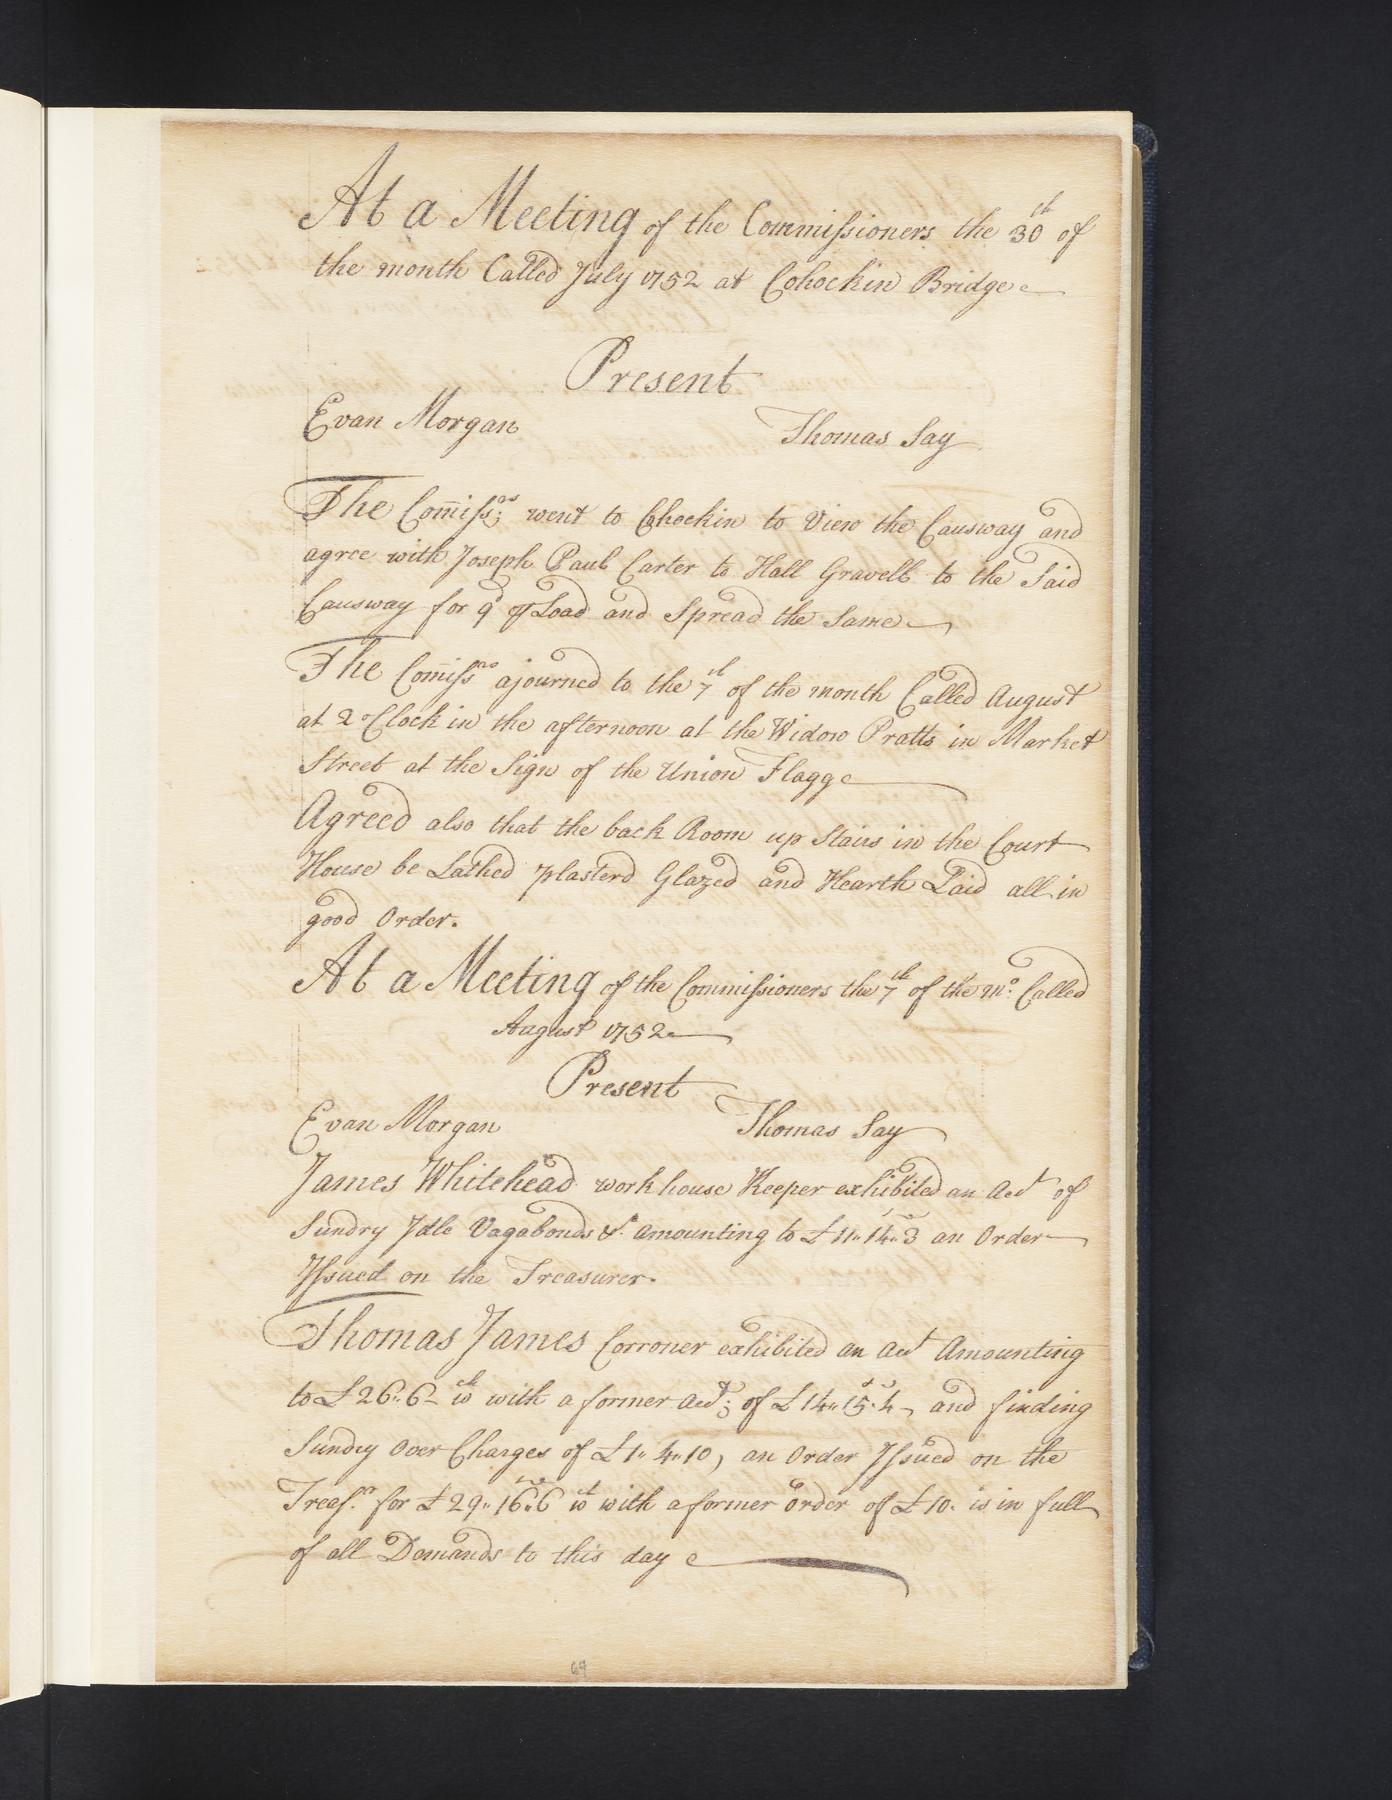 At a Meeting of the Commissioners the 30th of
the month Called July 1752 at Cohockin Bridge
Present
Evan Morgan Thomas Say
The Comissrs: went to Cohockin to View the Causway and
agree with Joseph Paul Carter to Hall Gravell to the Said
Causway for 9d ⅌ Load and Spread the Same
The Comissrs ajourned to the 7th of the month Called August
at 2 oClock in the afternoon at the Widow Pratts in Market
Street at the Sign of the Union Flagg
Agreed also that the back Room up Stairs in the Court
House be Lathed plasterd Glazed and Hearth Laid all in
good Order.
At a Meeting of the Commissioners the 7th of the mo: Called
August 1752
Present
Evan Morgan Thomas Say
James Whitehead work house Keeper exhibited an Acct of
Sundry Idle Vagabonds &c. amounting to £11„14„3 an Order
Issued on the Treasurer.
Thomas James Corroner exhibited an Acct Amounting
to £26„6- wch with a former Acct: of £14„15„4, and finding
Sundry Over Charges of £1„4„10, an Order Issued on the
Treasr. for £29„16„6 wch with a former order of £10. is in full
of all Demands to this day
69